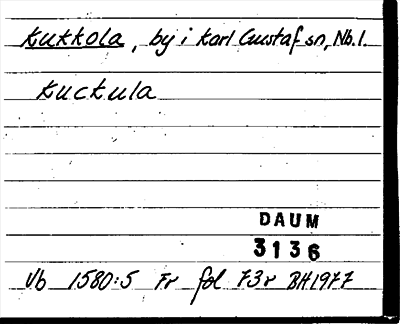 Kukkola, by i Karl Gustaf sn, Nb.l.
Kuckula
DAUM
3136
Vb 1580:5 Fr fol 73r BH1977